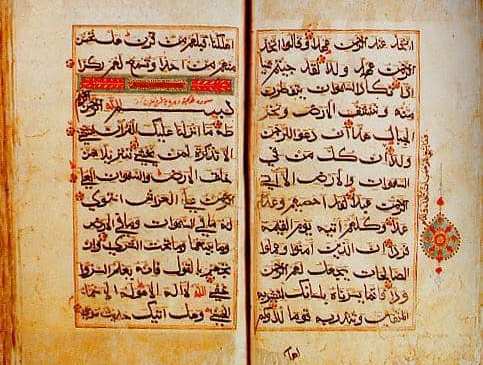 اتخذ عند الرحمن عهدا وقالوا اتخذ
الرحمن ولدا لقد جئتم شيئا
ادا تكاد السموات يتفطرن
منه وتنشق الارض وتخر
الجبال هدا ان دعوا للرحمن
ولدا ان كل من في
السموات والارض الا اتي
الرحمن عبدا لقد احصيهم وعدهم
عدا وكلهم اتيه يوم القيمة
فردا ان الذين امنوا وعملوا
الصالحات سيجعل لهم الرحمن
ودا فانما يسرناه بلسانك لتبشر به
المتقين وتنذر به قوما لدا وكم
اهلكنا قبلهم من قرن هل تحس
منهم من احد او تسمع لهم ركزا
سورة طه
بسم الله الرحمن الرحيم
طه ما انزلنا عليك القران لتشقى
الا تذكرة لمن يخشى تنزيلا ممن
خلق الارض والسموات العلى
الرحمن على العرش استوى
له ما في السموات وما في الارض
وما بينهما وما تحت الثرى وان
تجهر بالقول فانه يعلم السر وا
خفى الله لا اله الا هو له الاسماء
الحسنى وهل اتيك حديث موسى